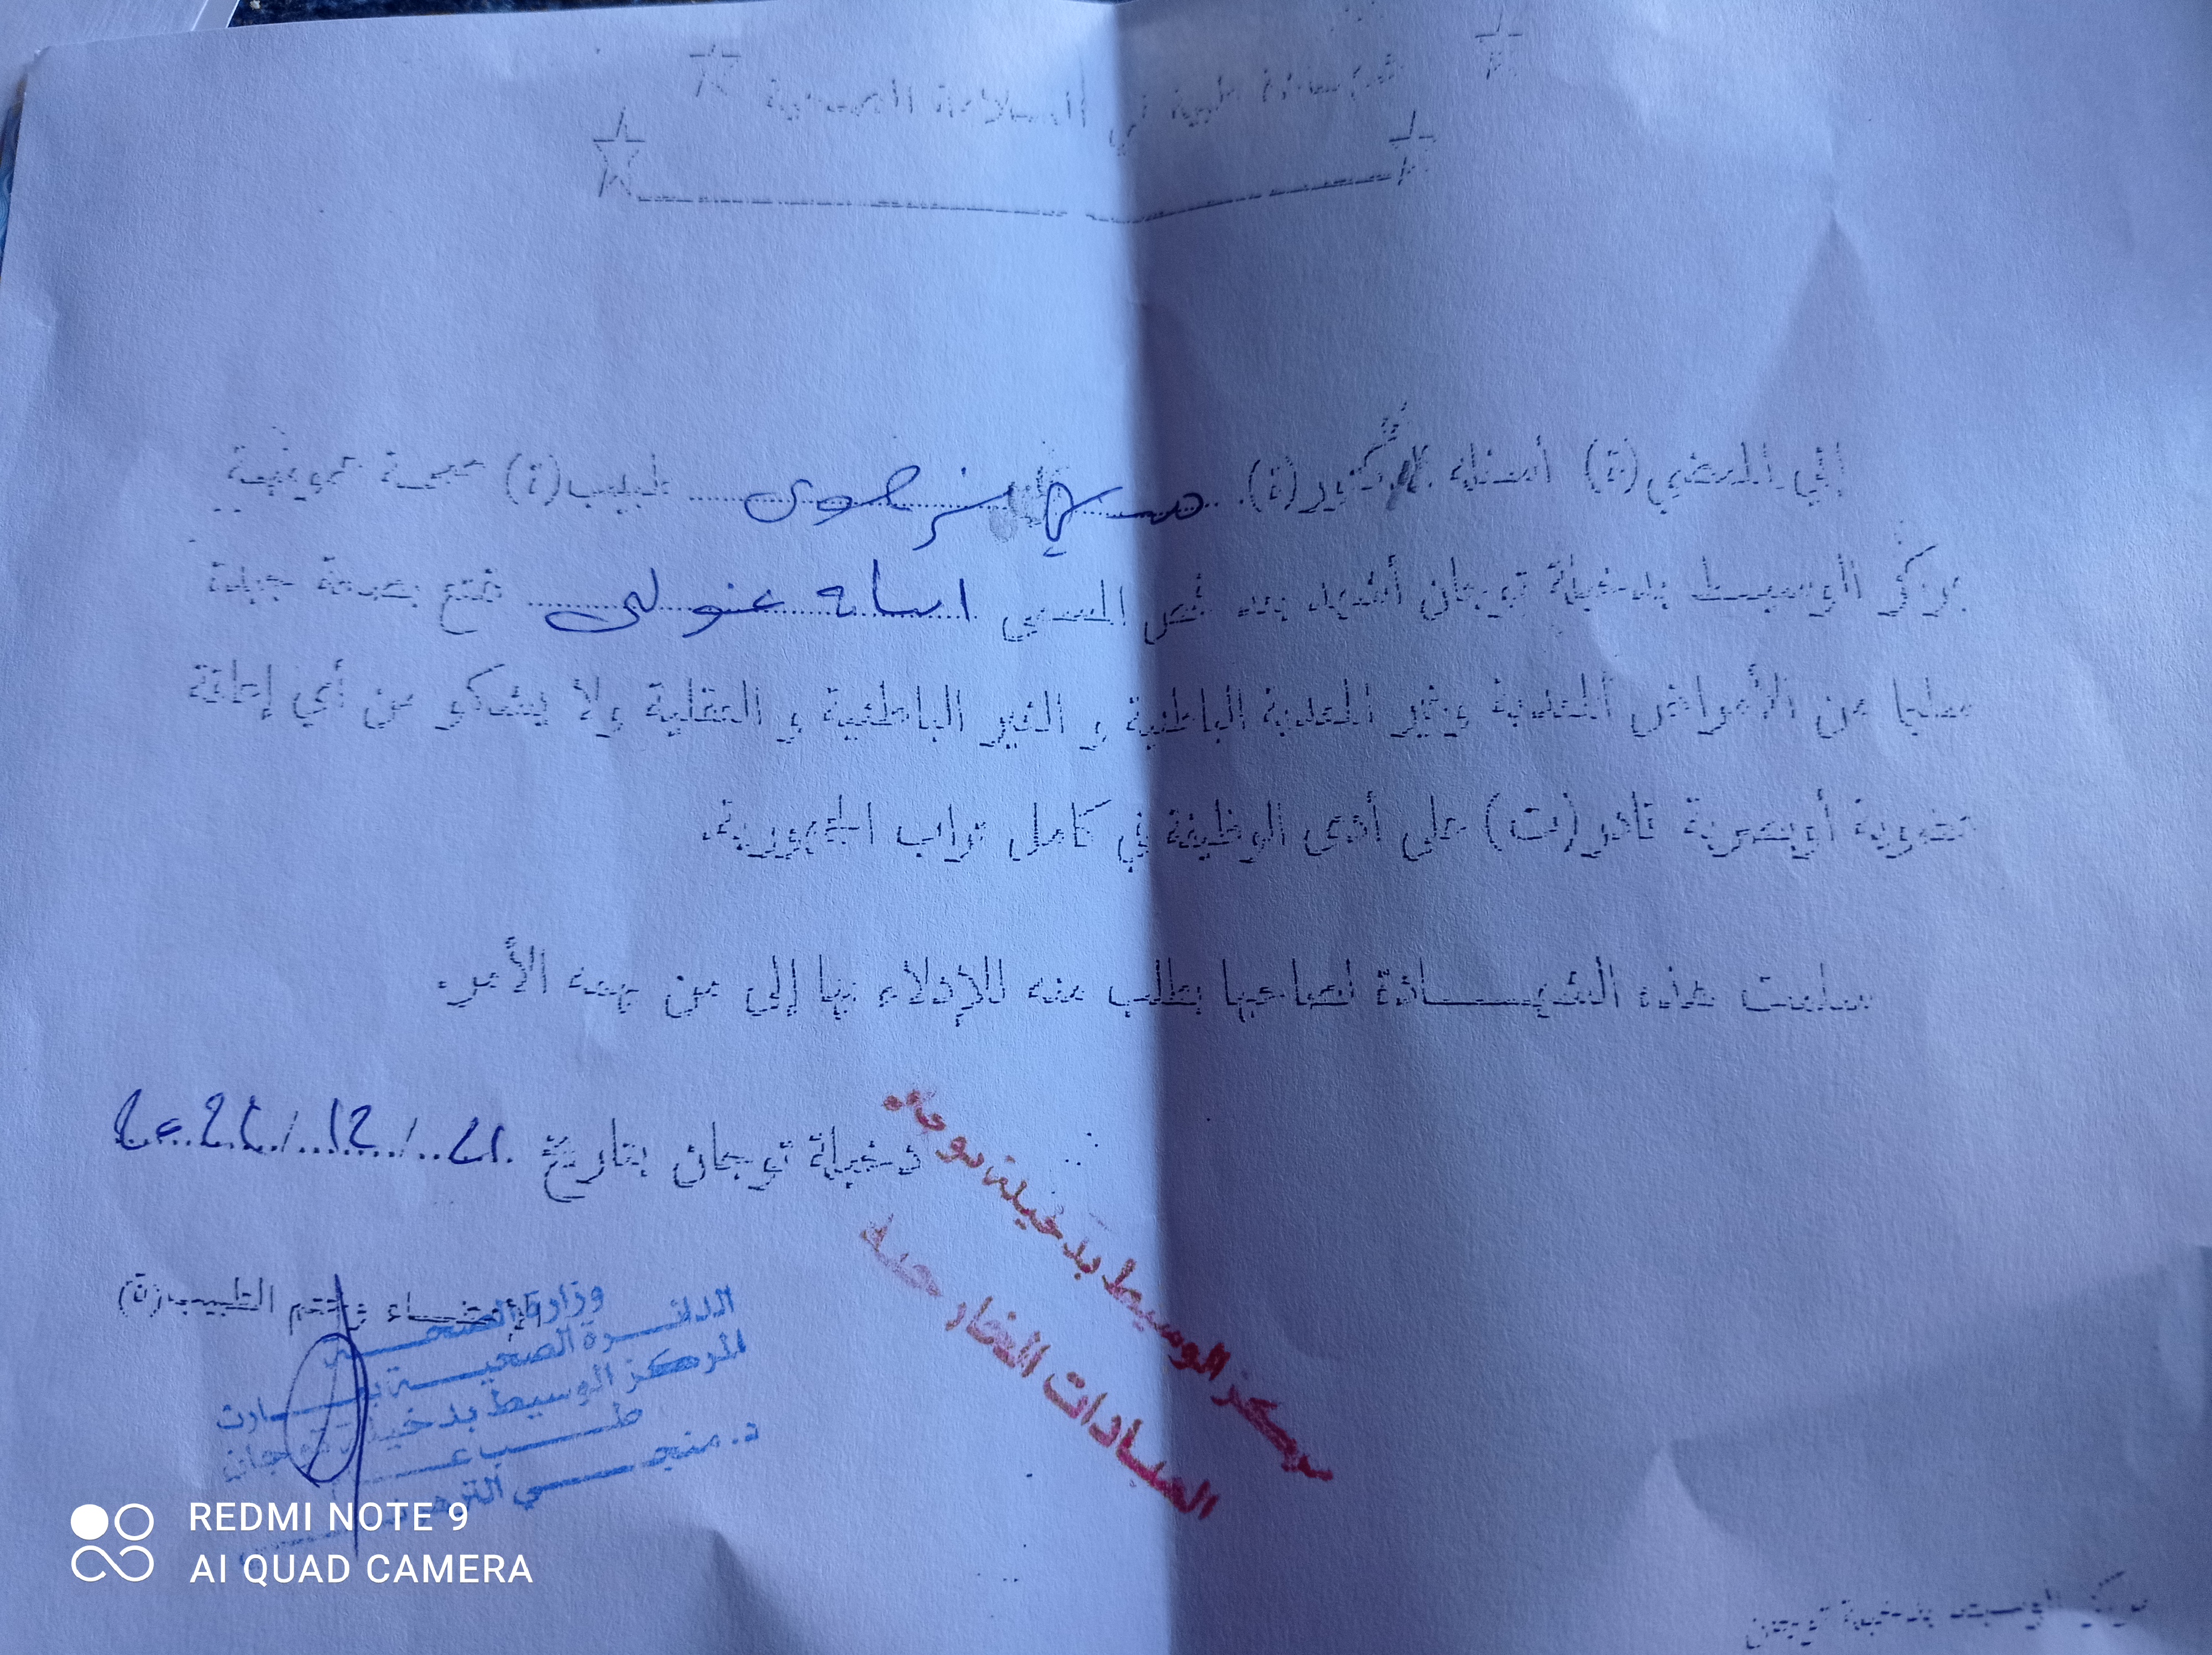 شهادة طبية في السلامة الجسمية
إني الممضي(ة) أسفله الدكتور(ة). ........ طبيب(ة) صحة عمومية
بمركز الوسيط بدخيلة توجان أشهد بعد فحص المسمى ........ متمتع بصحة جيدة
سليما من الأمراض المعدية وغير المعدية الباطنية و الغير الباطنية و العقلية ولا يشكو من أي إعاقة
عضوية أوبصرية قادر(ت) على أدى الوظيفة في كامل تراب الجمهورية.
سلمت هذه الشهـــادة لصاحبها بطلب منه للإدلاء بها إلى من يهمه الأمر.
دخيلة توجان بتاريخ
الإمضاء وختم الطبيب(ة)
وزارة الصحة
الدائرة الصحية بمارث
المركز الوسيط بدخيلة توجان
طب عام
د. منجي
مركز الوسيط بدخيلة توجان
العيادات الخارجية
REDMI NOTE 9
AI QUAD CAMERA